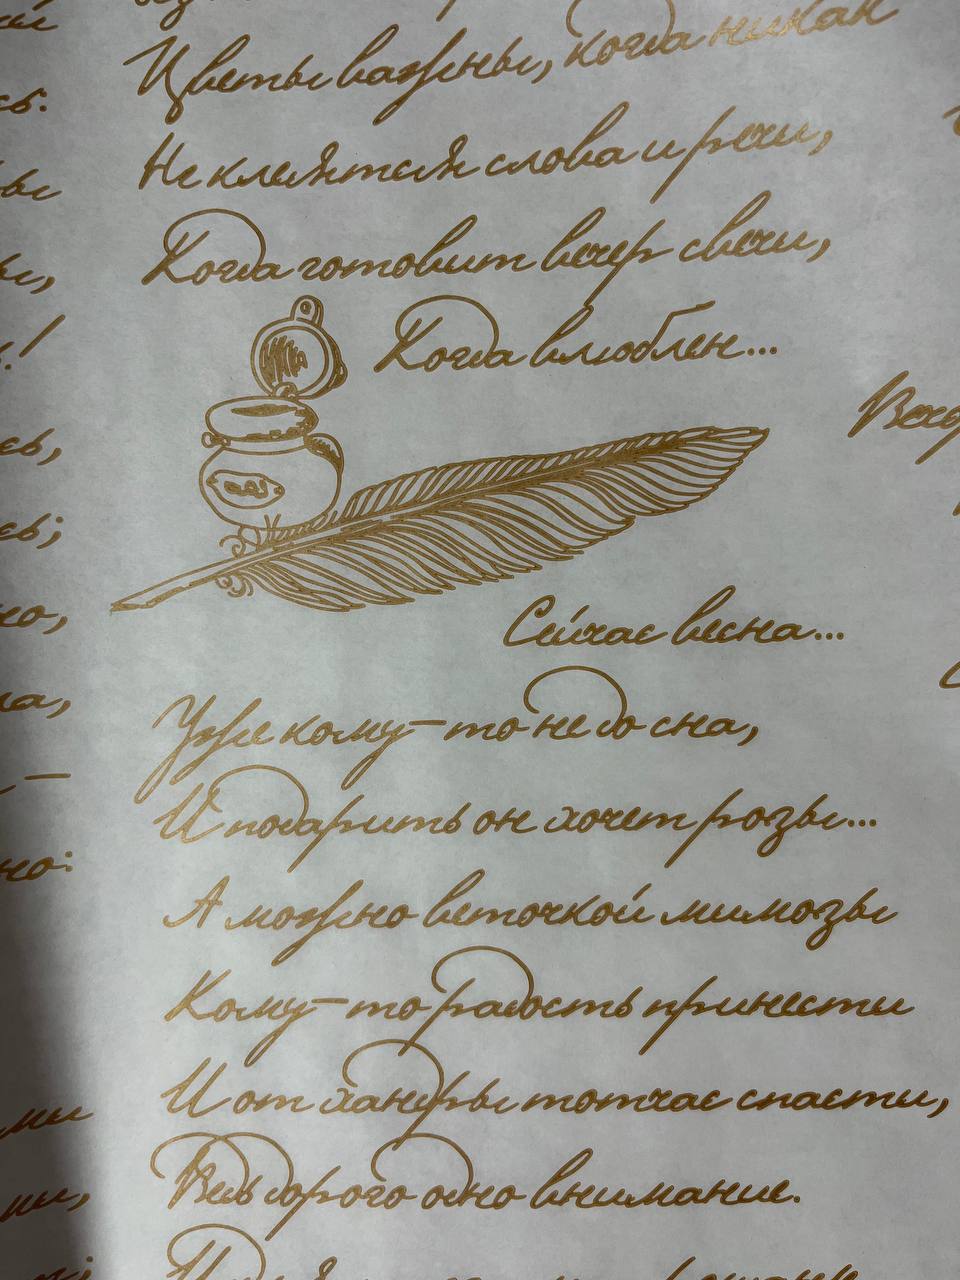 Цветы важны, когда никак
Не клеятся слова и речи,
Когда готовит вечер свечи,
Когда влюблен...
Сейчас весна...
Уже кому-то не до сна,
И подарить он хочет розы...
А можно веточкой мимозы
Кому-то радость принести
И от хандры тотчас спасти,
Ведь дорого одно внимание.